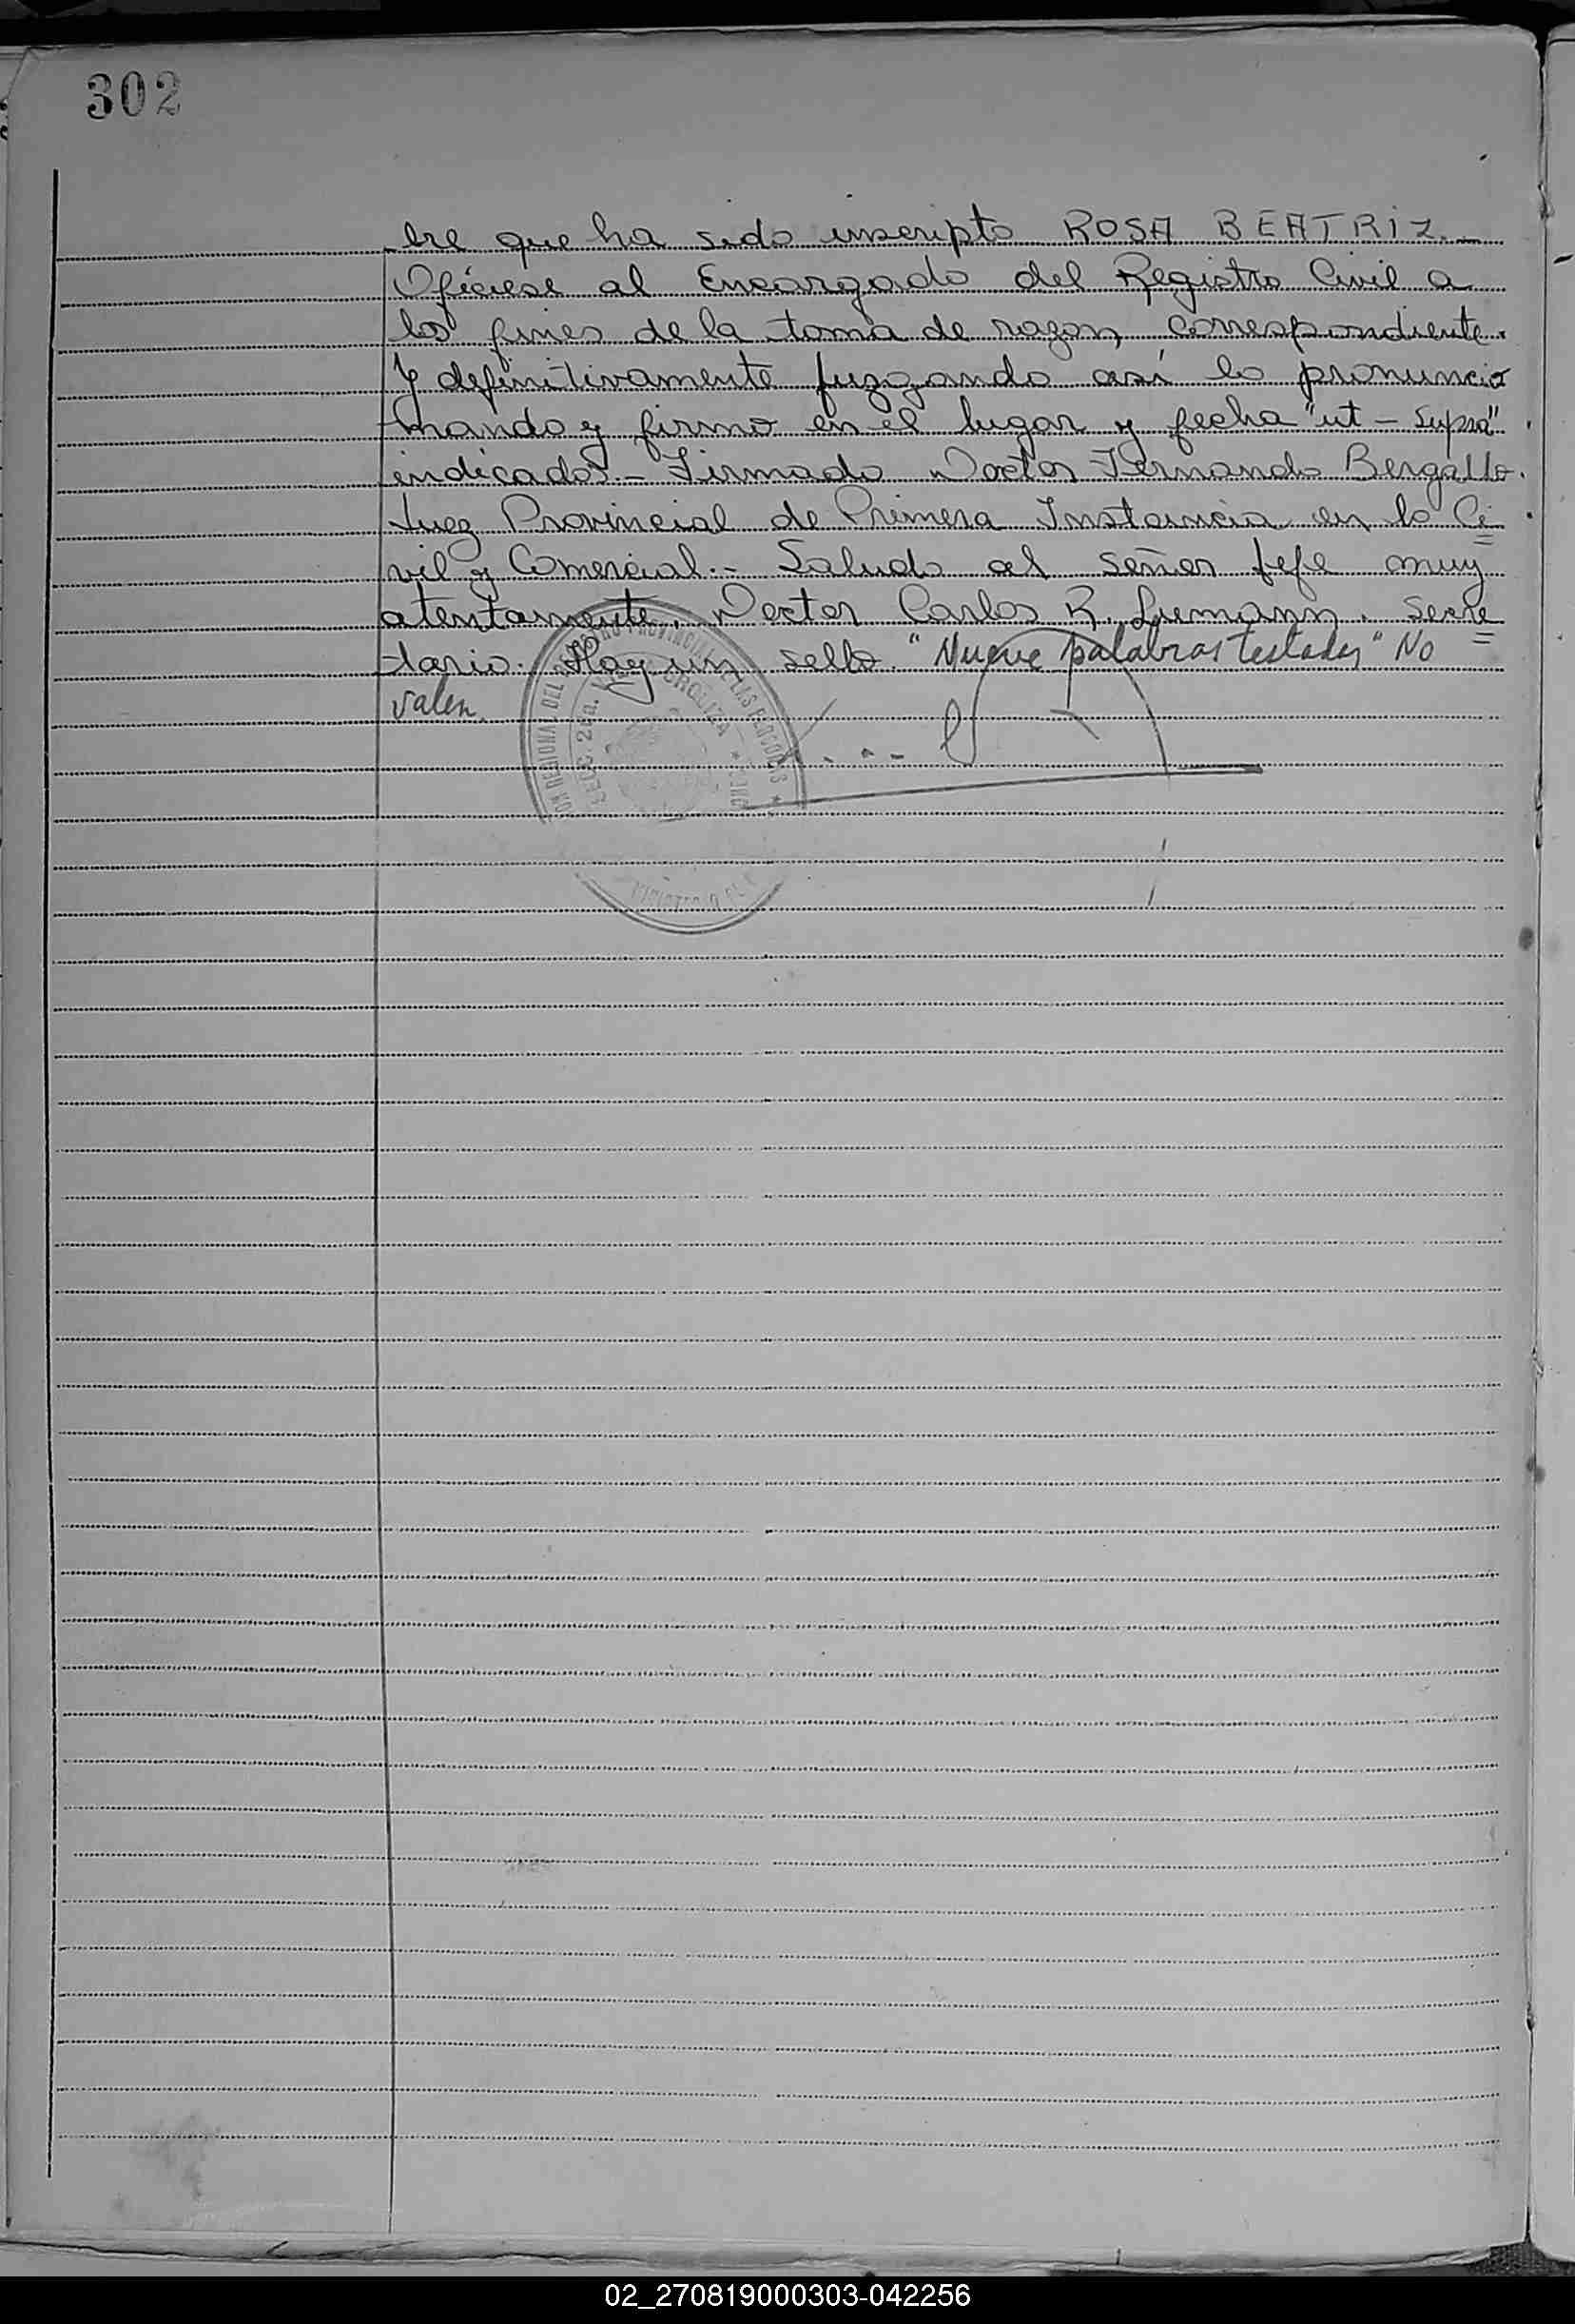 302
bre que ha sido inscripto ROSA BEATRIZ.-
Ofíciese al Encargado del Registro Civil a
los fines de la toma de razon, correspondiente.
Y definitivamente juzgando así lo pronuncio
mando y firmo en el lugar y fecha "ut - supra"
indicados.- Firmado Doctor Fernando Bergallo.
Juez Provincial de Primera Instancia en lo Ci=
vil y Comercial.- Saludo al señor Jefe muy
atentamente. Doctor Carlos R. Lumann. Secre=
tario. Hay un sello. "Nueve palabras testadas" No
valen.
REGIONAL DEL PROVINCIAL DE LAS PERSONAS
SECC. 2da. URQUIZA
02_270819000303-042256